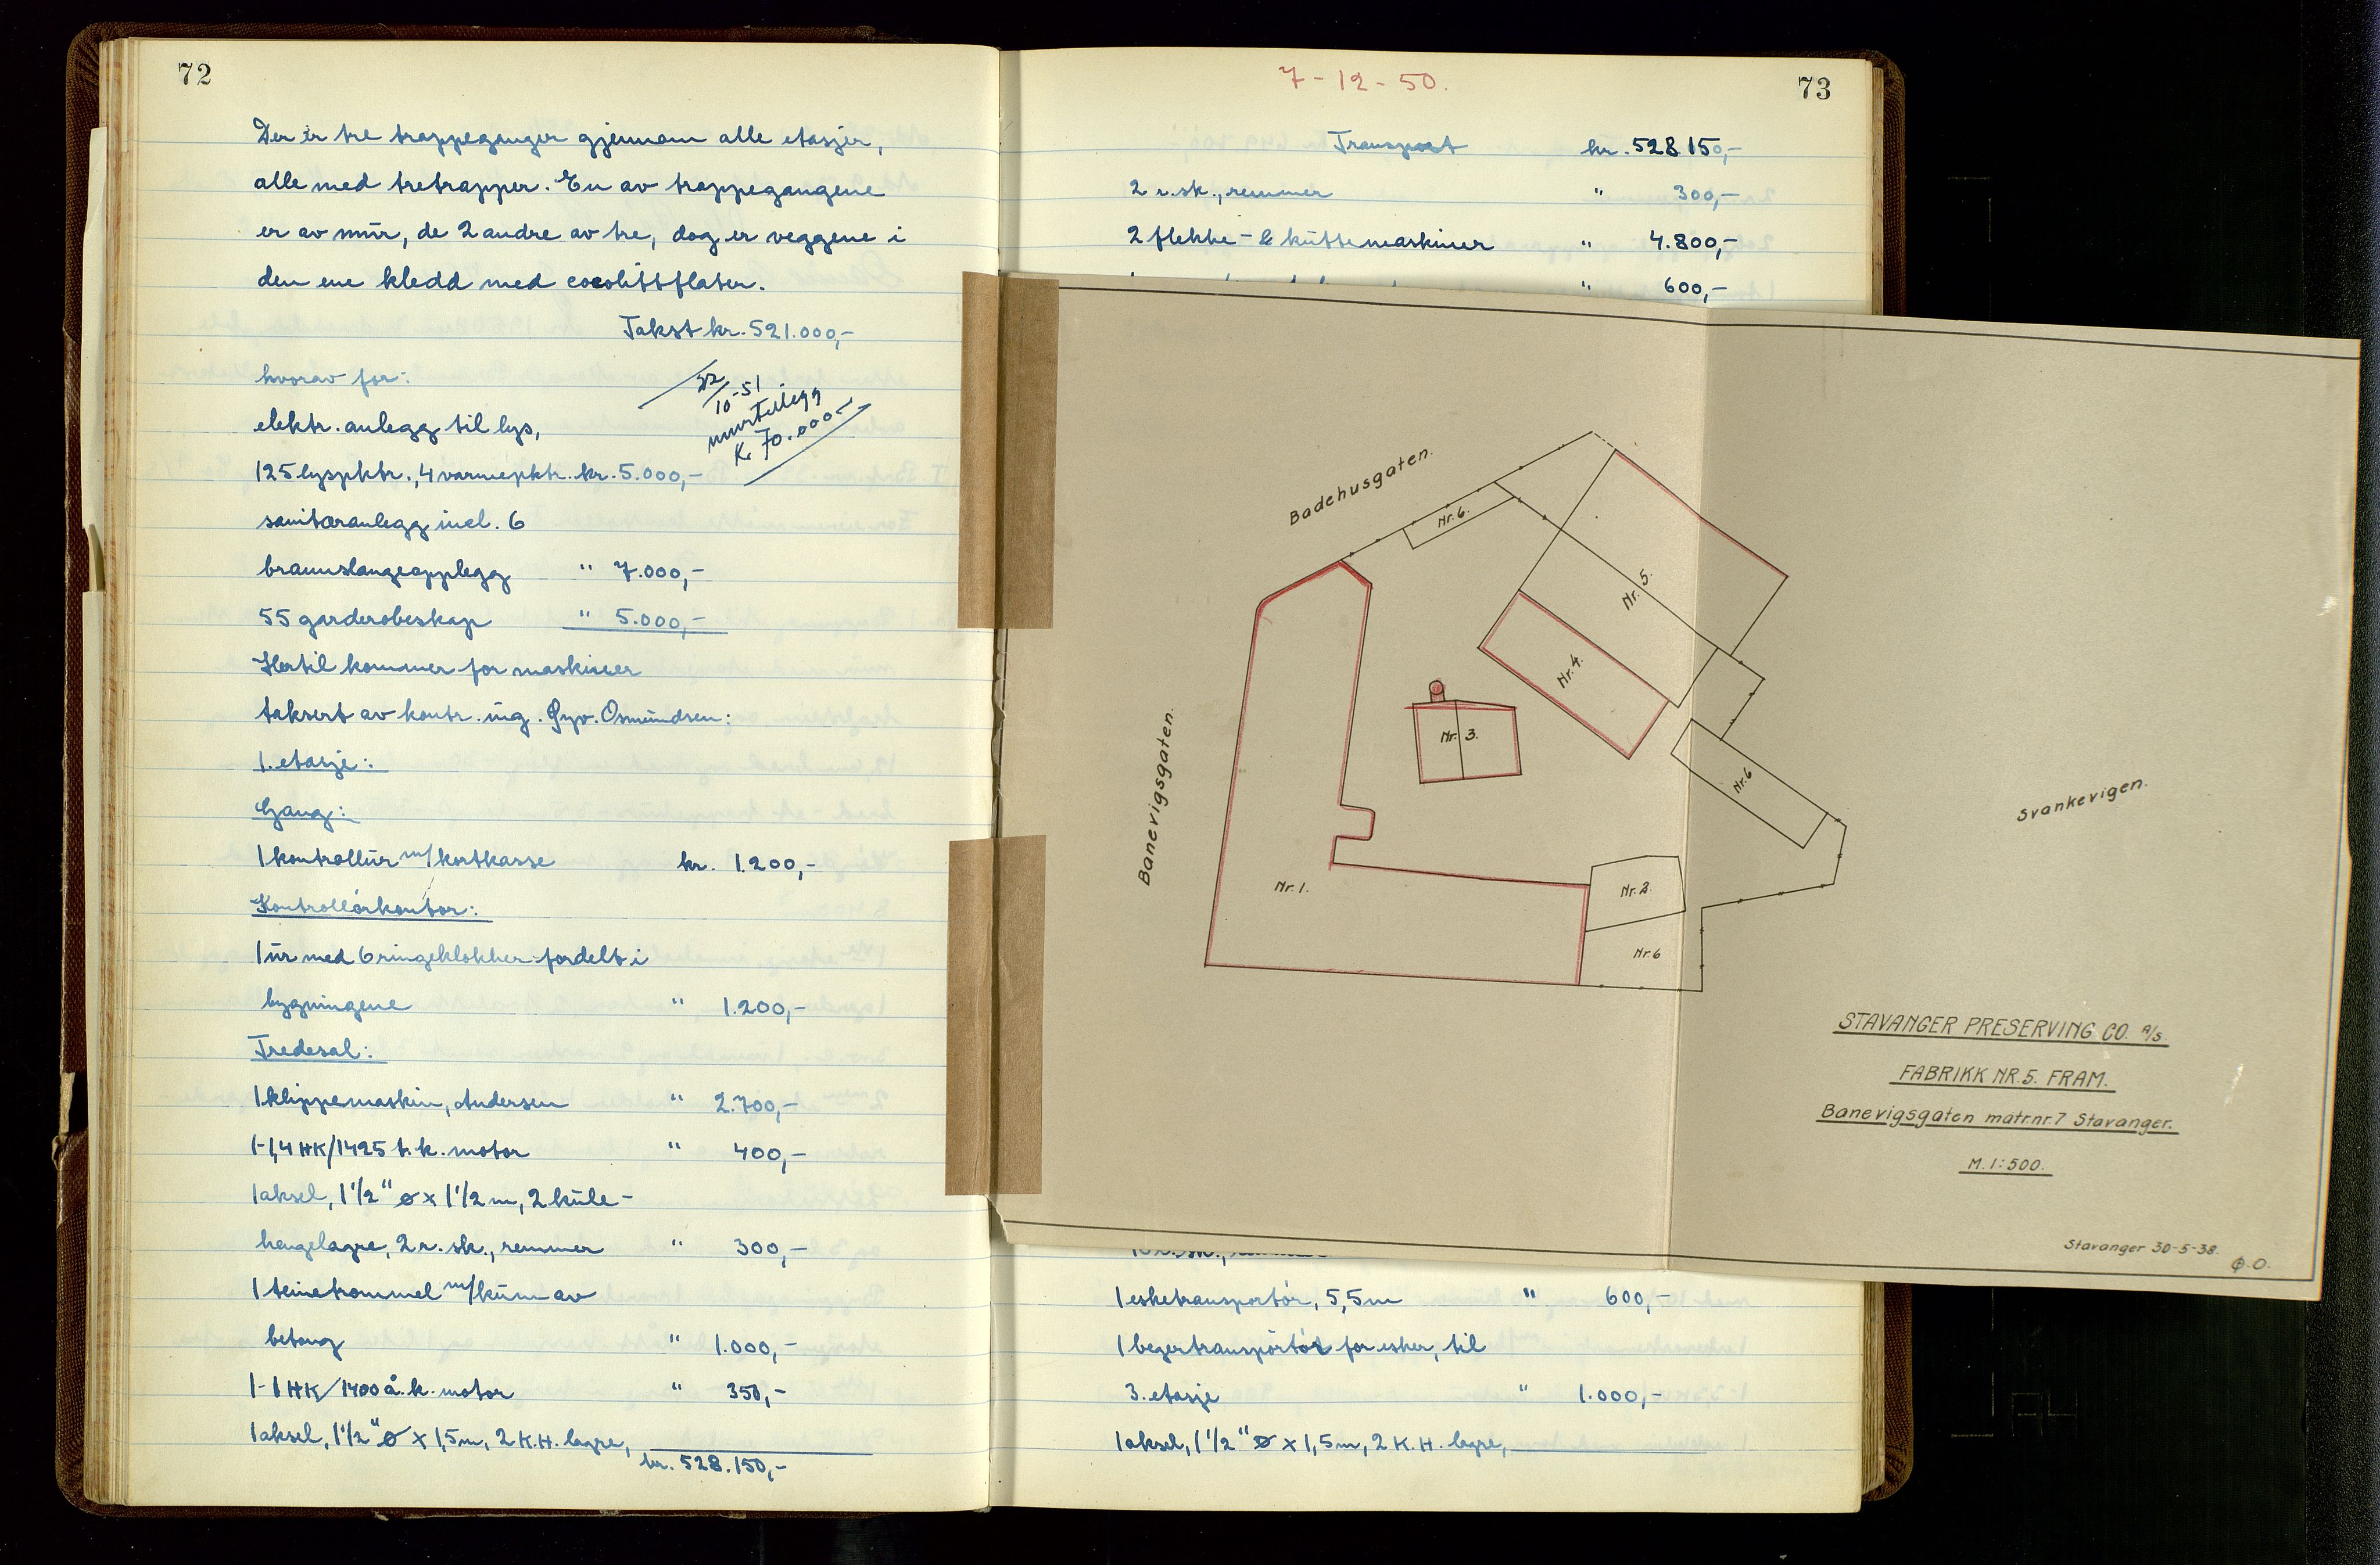 72
Der er tre trappeganger gjennom alle etasjer,
alle med tretrapper. En av trappegangene
er av mur, de 2 andre av tre, dog er veggene i
den ene kledd med cocolittflater.
Takst kr. 521.000,-
hvorav for:
elektr. anlegg til lys,
125 lyspktr., 4 varmepktr. kr. 5.000,-
sanitæranlegg incl. 6
brannslangeopplegg " 7.000,-
55 garderobeskap " 5.000,-
Hertil kommer for maskiner
taksert av kontr. ing. Gyv. Osmundsen:
1. etasje:
Gang:
1 kontrollur m/kortkasse kr. 1.200,-
Kontrollørkontor:
1 ur med 6 ringeklokker fordelt i
bygningene " 1.200,-
Tredesal:
1 klippemaskin, Andersen " 2.700,-
1-1,4 HK/1425 t.k. motor " 400,-
1 aksel, 1 1/2" ø x 1 1/2 m, 2 kule-
hengelagre, 2 r. sk., remmer " 300,-
1 teinetrommel m/kum av
betong " 1.000,-
1-1 HK/1400 å.k. motor " 350,-
1 aksel, 1 1/2" ø x 1,5 m, 2 K.H. lagre,
kr. 528.150,-
10-51
K. 70.000-
7-12-50.
73
Transport kr. 528.150,-
2 r. sk., remmer " 300,-
2 flekke- & kuttemaskiner " 4.800,-
" 600,-
Badehusgaten.
Nr. 6.
Nr. 5.
Nr. 4.
Nr. 3.
Nr. 6
Banevigsgaten.
Svankevigen.
Nr. 1.
Nr. 2.
Nr. 6
STAVANGER PRESERVING CO. A/S.
FABRIKK NR. 5. FRAM.
Banevigsgaten matr.nr. 7 Stavanger.
M. 1:500.
Stavanger 30-5-38.
Ø.O.
1 esketransportør, 5,5 m " 600,-
1 begertransportør for esker, til
3. etasje " 1.000,-
1 aksel, 1 1/2" ø x 1,5 m, 2 K.H. lagre,